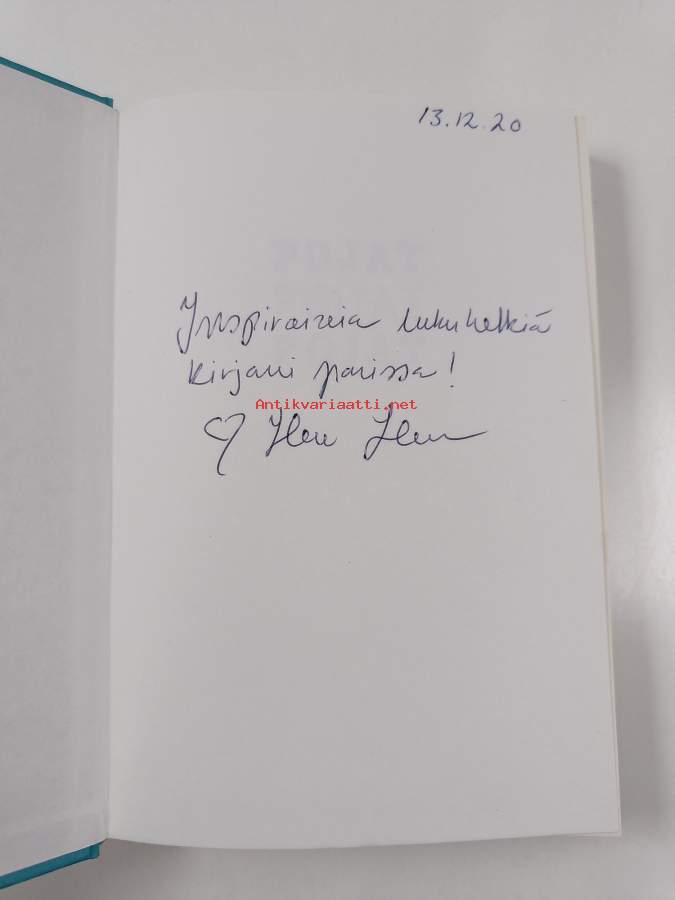 13.12.20
POJAT
Inspiroivia lukuhetkiä
kirjani parissa!
Antikvariaatti.net